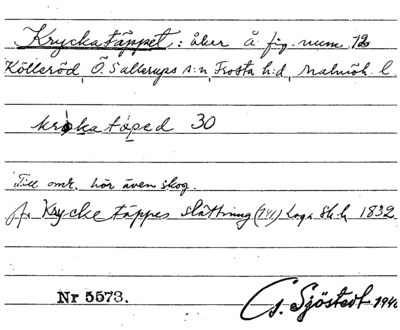 Kryckatäppet, : åker å fig. num. 120
Kölleröd, Ö. Sallerups s:n, Frosta h:d, Malmöh. l.
krokatäped 30
Till omr. hör även skog.
jfr Krycketäppes slåttning (141) Laga sk. h. 1832.
Nr 5573.
G. Sjöstedt 194